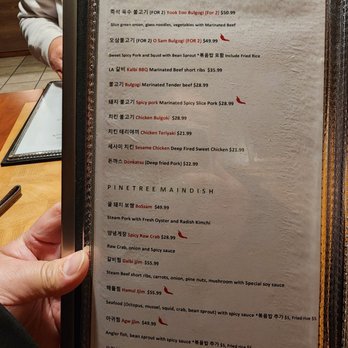 뚝석 육수 불고기 (FOR 2) Yook Too Bulgogi (For 2) $50.99
Stut green onion, glass noodles, vegetables with Marinated Beef
오삼불고기 (FOR 2) O Sam Bulgogi (FOR 2) $49.99
Sweet Spicy Pork and Squid with Bean Sprout *볶음밥 포함 Include Fried Rice
LA 갈비 Kalbi BBQ Marinated Beef short ribs $35.99
불고기 Bulgogi Marinated Tender beef $28.99
돼지 불고기 Spicy pork Marinated Spicy Slice Pork $28.99
치킨 불고기 Chicken Bulgoki $28.99
치킨 데리야끼 Chicken Teriyaki $21.99
세사미 치킨 Sesame Chicken Deep Fired Sweet Chicken $21.99
돈까스 Donkatsu (Deep fried Pork) $22.99
PINETREE MAINDISH
굴 돼지 보쌈 BoSsam $49.99
Steam Pork with Fresh Oyster and Radish Kimchi
양념게장 Spicy Raw Crab $28.99
Raw Crab, onion and Spicy sauce
갈비찜 Galbi Jjim $55.99
Steam Beef short ribs, carrots, onion, pine nuts, mushroom with Special soy sauce
해물찜 Hamul Jjim $55.99
Seafood (Octopus, mussel, squid, crab, bean sprout) with spicy sauce *볶음밥 추가 $5, Fried rice $5
아귀찜 Agw Jjim $49.99
Angler fish, bean sprout with spicy sauce *볶음밥 추가 $5, Fried rice $5